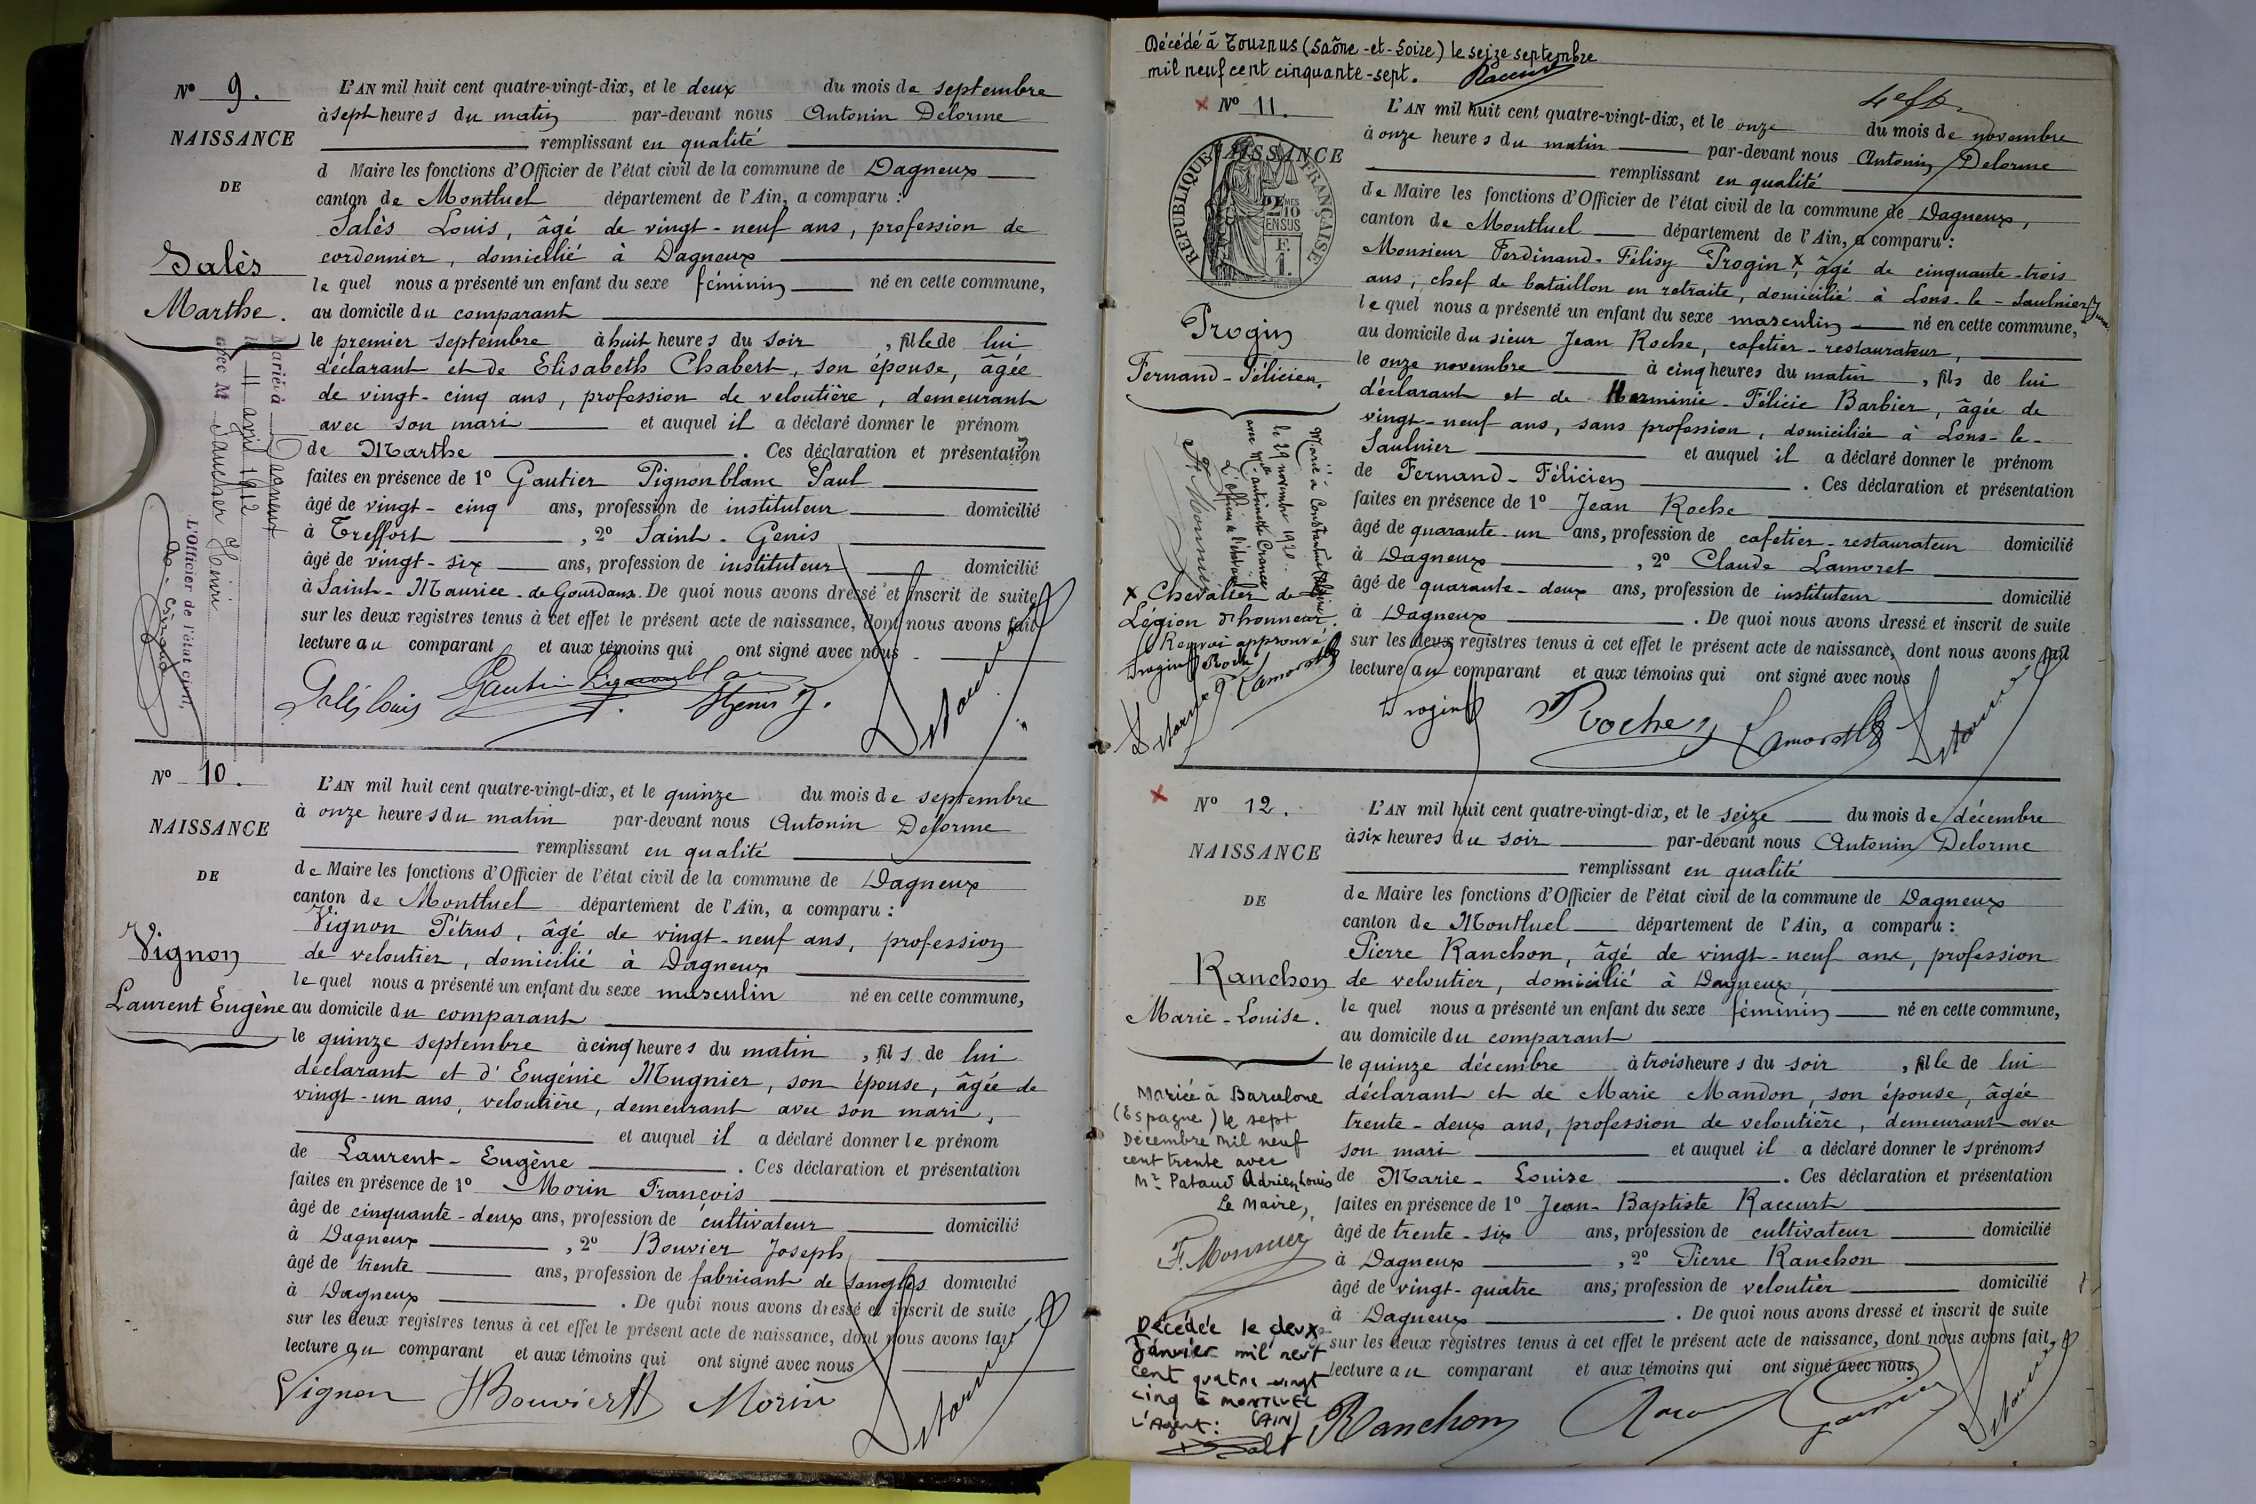 N° 9.
NAISSANCE
DE
Salès
Marthe.
L'AN mil huit cent quatre-vingt-dix, et le deux du mois de septembre
à sept heures du matin par-devant nous Antonin Delorme
remplissant en qualité
d Maire les fonctions d'Officier de l'état civil de la commune de Dagneux
canton de Montluel département de l'Ain, a comparu :
Salès Louis, âgé de vingt-neuf ans, profession de
cordonnier, domicilié à Dagneux
lequel nous a présenté un enfant du sexe féminin né en cette commune,
au domicile du comparant
le premier septembre à huit heures du soir, fille de lui
déclarant et de Elisabeth Chabert, son épouse, âgée
de vingt-cinq ans, profession de veloutière, demeurant
avec son mari et auquel il a déclaré donner le prénom
de Marthe. Ces déclaration et présentation
faites en présence de 1° Gautier Pignonblanc Paul
âgé de vingt-cinq ans, profession de instituteur domicilié
à Treffort, 2° Saint-Genis
âgé de vingt-six ans, profession de instituteur domicilié
à Saint-Maurice-de-Gourdans. De quoi nous avons dressé et inscrit de suite
sur les deux registres tenus à cet effet le présent acte de naissance, dont nous avons fait
lecture au comparant et aux témoins qui ont signé avec nous
Salès Louis Gautier Pignonblanc StGenis J. Delorme
Marié à Dagneux
le 11 avril 1912
avec M Saucher Henri
L'Officier de l'état civil,
N° 10.
NAISSANCE
DE
Vignon
Laurent Eugène
L'AN mil huit cent quatre-vingt-dix, et le quinze du mois de septembre
à onze heures du matin par-devant nous Antonin Delorme
remplissant en qualité
de Maire les fonctions d'Officier de l'état civil de la commune de Dagneux
canton de Montluel département de l'Ain, a comparu :
Vignon Pétrus, âgé de vingt-neuf ans, profession
de veloutier, domicilié à Dagneux
lequel nous a présenté un enfant du sexe masculin né en cette commune,
au domicile du comparant
le quinze septembre à cinq heures du matin, fils de lui
déclarant et d'Eugénie Mugnier, son épouse, âgée de
vingt-un ans, veloutière, demeurant avec son mari,
et auquel il a déclaré donner le prénom
de Laurent-Eugène. Ces déclaration et présentation
faites en présence de 1° Morin François
âgé de cinquante-deux ans, profession de cultivateur domicilié
à Dagneux, 2° Bouvier Joseph
âgé de trente ans, profession de fabricant de sangles domicilié
à Dagneux. De quoi nous avons dressé et inscrit de suite
sur les deux registres tenus à cet effet le présent acte de naissance, dont nous avons fait
lecture au comparant et aux témoins qui ont signé avec nous
Vignon JBouvier Morin Delorme
Décédé à Tournus (Saône-et-Loire) le seize septembre
mil neuf cent cinquante-sept. Raccurt
N° 11.
NAISSANCE
RÉPUBLIQUE FRANÇAISE
2/10MES
EN SUS
F.
1.
Progin
Fernand-Félicien.
L'AN mil huit cent quatre-vingt-dix, et le onze du mois de novembre
à onze heures du matin par-devant nous Antonin Delorme
remplissant en qualité
de Maire les fonctions d'Officier de l'état civil de la commune de Dagneux,
canton de Montluel département de l'Ain, a comparu :
Monsieur Ferdinand-Félisy Progin x, âgé de cinquante-trois
ans, chef de bataillon en retraite, domicilié à Lons-le-Saulnier (Jura)
lequel nous a présenté un enfant du sexe masculin né en cette commune,
au domicile du sieur Jean Roche, cafetier-restaurateur,
le onze novembre à cinq heures du matin, fils de lui
déclarant et de Herminie-Félicie Barbier, âgée de
vingt-neuf ans, sans profession, domiciliée à Lons-le-
Saulnier et auquel il a déclaré donner le prénom
de Fernand-Félicien. Ces déclaration et présentation
faites en présence de 1° Jean Roche
âgé de quarante-un ans, profession de cafetier-restaurateur domicilié
à Dagneux, 2° Claude Lamoret
âgé de quarante-deux ans, profession de instituteur domicilié
à Dagneux. De quoi nous avons dressé et inscrit de suite
sur les deux registres tenus à cet effet le présent acte de naissance, dont nous avons fait
lecture au comparant et aux témoins qui ont signé avec nous
Progin Roche Lamoret Delorme
Marié à Constantine
le 29 novembre 1920
L'officier de l'état civil
F. Monnier
x Chevalier de la
Légion d'honneur.
Renvoi approuvé
Progin Roche
Delorme Lamoret
N° 12.
NAISSANCE
DE
Ranchon
Marie-Louise.
L'AN mil huit cent quatre-vingt-dix, et le seize du mois de décembre
à six heures du soir par-devant nous Antonin Delorme
remplissant en qualité
de Maire les fonctions d'Officier de l'état civil de la commune de Dagneux
canton de Montluel département de l'Ain, a comparu :
Pierre Ranchon, âgé de vingt-neuf ans, profession
de veloutier, domicilié à Dagneux,
lequel nous a présenté un enfant du sexe féminin né en cette commune,
au domicile du comparant
le quinze décembre à trois heures du soir, fille de lui
déclarant et de Marie Mandon, son épouse, âgée
trente-deux ans, profession de veloutière, demeurant avec
son mari et auquel il a déclaré donner les prénoms
de Marie-Louise. Ces déclaration et présentation
faites en présence de 1° Jean-Baptiste Raccurt
âgé de trente-six ans, profession de cultivateur domicilié
à Dagneux, 2° Pierre Ranchon
âgé de vingt-quatre ans, profession de veloutier domicilié
à Dagneux. De quoi nous avons dressé et inscrit de suite
sur les deux registres tenus à cet effet le présent acte de naissance, dont nous avons fait
lecture au comparant et aux témoins qui ont signé avec nous
Ranchon Delorme
Mariée à Barcelone
(Espagne) le sept
Décembre mil neuf
cent trente avec
Mr Pataud Adrien Louis
Le Maire,
F. Monnier
Décédée le deux
Janvier mil neuf
cent quatre vingt
cinq à MONTLUEL
(AIN)
L'Agent: